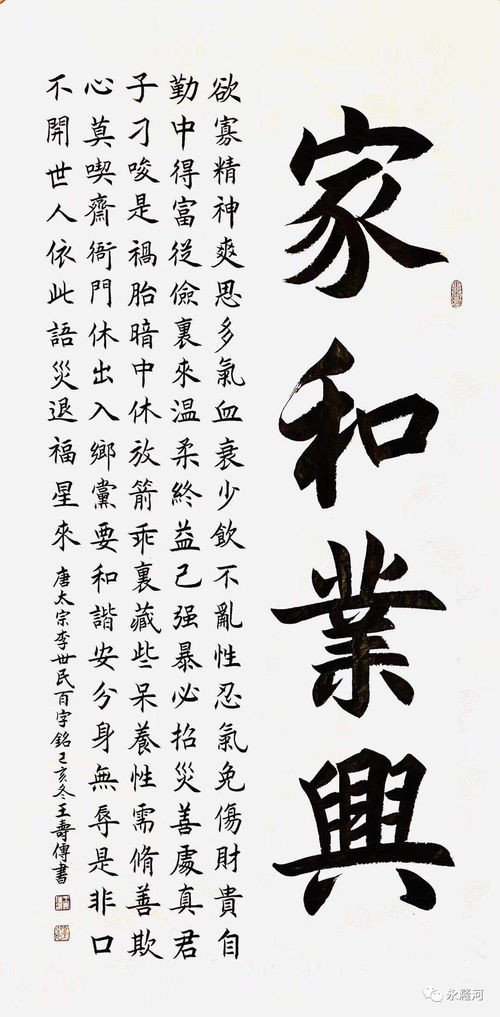 家和業興
欲寡精神爽思多氣血衰少飲不亂性忍氣免傷財貴自
勤中得富從儉裏來温柔終益己强暴必招災善處真君
子刁唆是禍胎暗中休放箭乖裏藏些呆養性需脩善欺
心莫喫齋衙門休出入鄉黨要和諧安分身無辱是非口
不開世人依此語災退福星來 唐太宗李世民百字銘己亥冬王壽傳書
永濰河